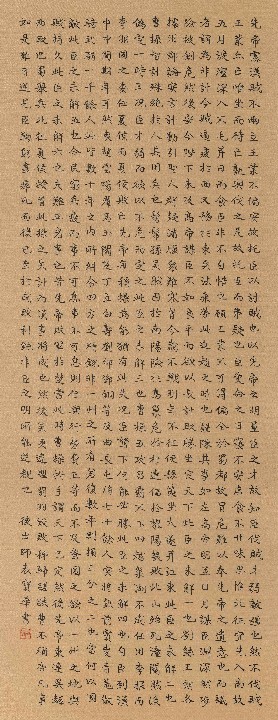 先帝慮漢賊不兩立王業不偏安故託臣以討賊也以先帝之明量臣之才故知臣伐賊才弱敵彊也然不伐賊
王業亦亡惟坐而待亡孰與伐之是故託臣而弗疑也臣受命之日寢不安席食不甘味思惟北征宜先入南故
五月渡瀘深入不毛并日而食臣非不自惜也顧王業不可得偏全於蜀都故冒危難以奉先帝之遺意也而議
者謂為非計今賊適疲於西又務於東兵法乘勞此進趨之時也謹陳其事如左高帝明並日月謀臣淵深然涉
險被創危然後安今陛下未及高帝謀臣不如良平而欲以長計取勝坐定天下此臣之未解一也劉繇王朗各
據州郡論安言計動引聖人群疑滿腹眾難塞胸今歲不戰明年不征使孫策坐大遂并江東此臣之未解二也
曹操智計殊絕於人其用兵也髣髴孫吳然困於南陽險於烏巢危於祁連偪於黎陽幾敗北山殆死潼關然後
偽定一時耳況臣才弱而欲以不危而定之此臣之未解三也曹操五攻昌霸不下四越巢湖不成任用李服而
李服圖之委任夏侯而夏侯敗亡先帝每稱操為能猶有此失況臣駑下何能必勝此臣之未解四也自臣到漢
中中間朞年耳然喪趙雲陽群馬玉閻芝丁立白壽劉郃鄧銅等及曲長屯將七十餘人突將無前賨叟青羌散
騎武騎一千餘人此皆數十年之內所糾合四方之精銳非一州之所有若復數年則損三分之二也當何以圖
敵此臣之未解五也今民窮兵疲而事不可息事不可息則住與行勞費正等而不及早圖之欲以一州之地與
賊持久此臣之未解六也夫難平者事也昔先帝敗軍於楚當此時曹操拊手謂天下已定然後先帝東連吳越
西取巴蜀舉兵北征夏侯授首此操之失計而漢事將成也然後吳更違盟關羽毀敗秭歸蹉跌曹丕稱帝凡事
如是難可逆見臣鞠躬盡瘁死而後已至於成敗利鈍非臣之明所能逆覩也 後出師表 華書